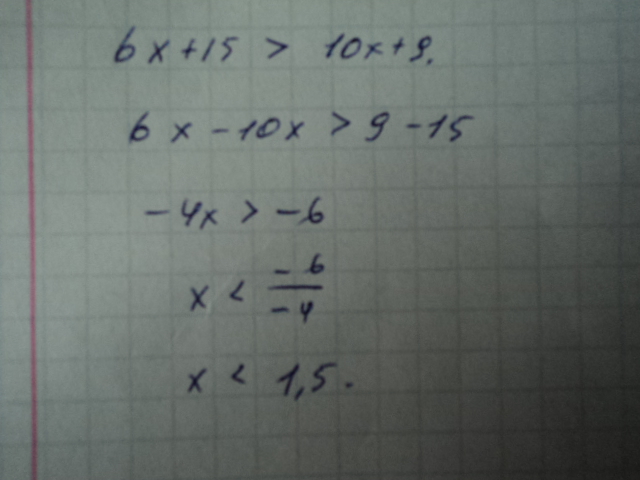 6x+15 > 10x+9.
6x-10x > 9-15
-4x > -6
x < -6/-4
x < 1,5.